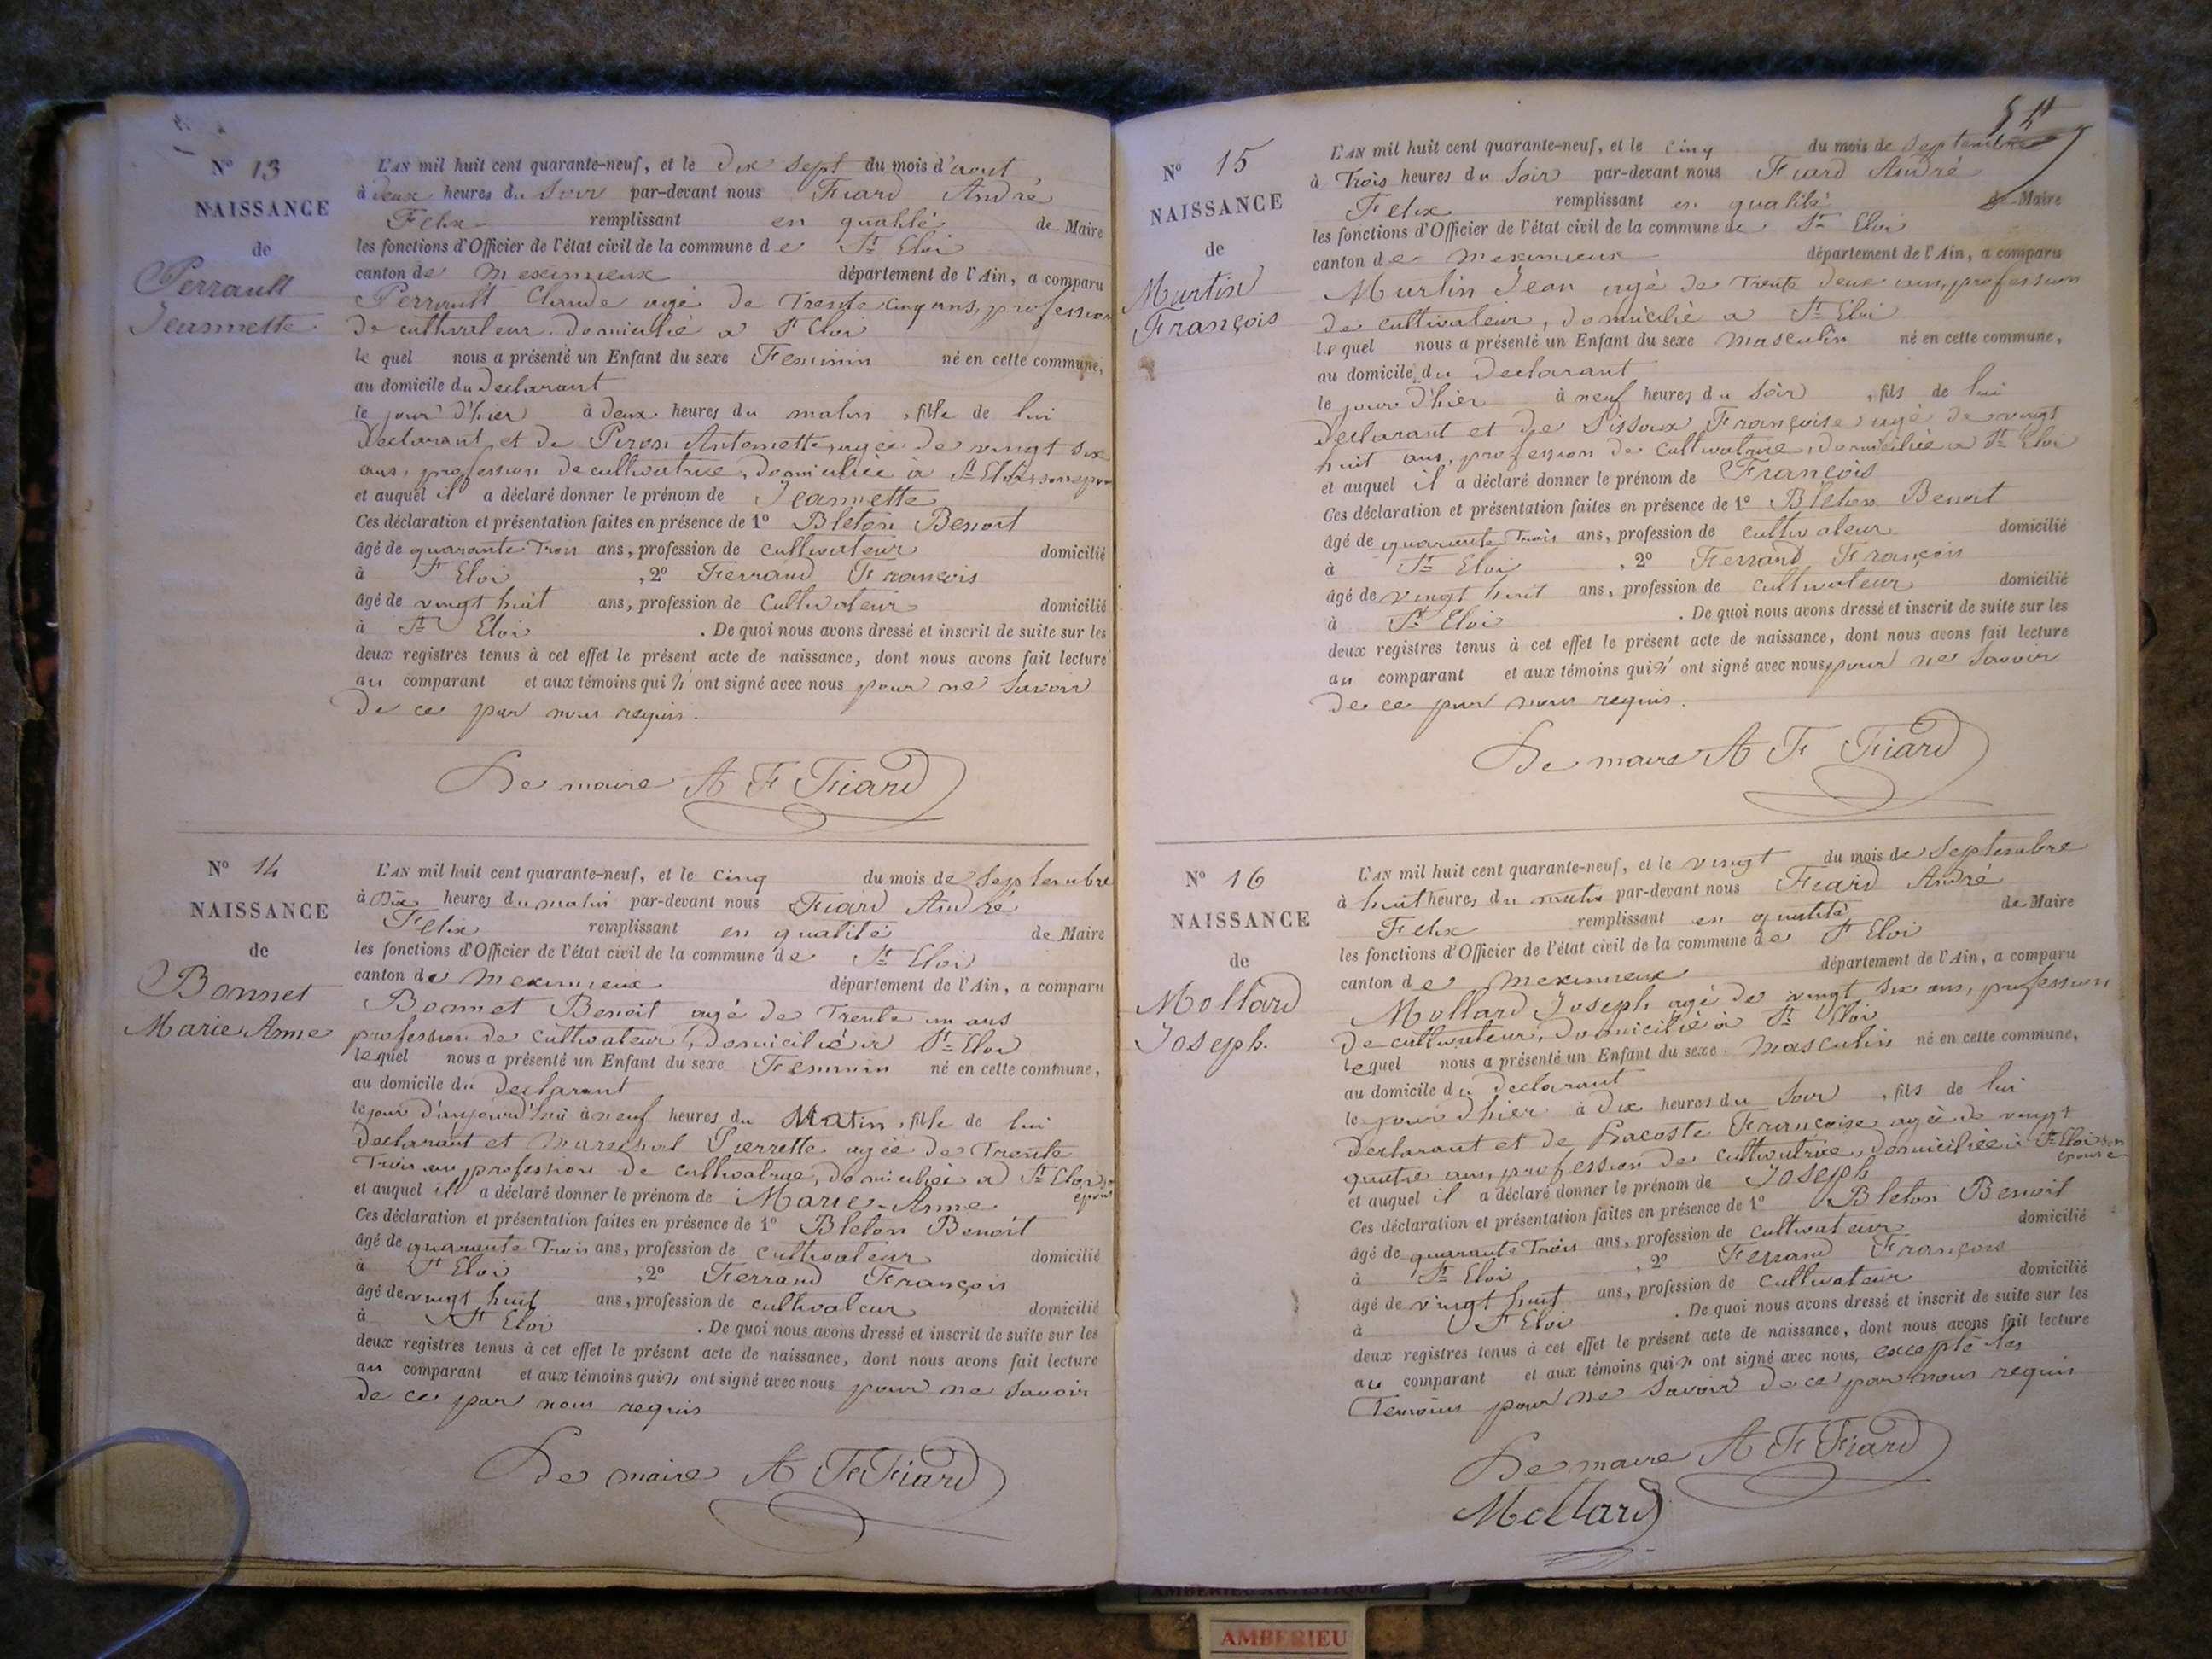 N° 13
NAISSANCE
de
Perrault
Jeannette
L'AN mil huit cent quarante-neuf, et le dix sept du mois d'aout
à deux heures du soir par-devant nous Fiard André
Felix remplissant en qualité de Maire
les fonctions d'Officier de l'état civil de la commune de St Eloi
canton de meximieux département de l'Ain, a comparu
Perrault Claude agé de Trente cinq ans, profession
de cultivateur domicilié a St Eloi
le quel nous a présenté un Enfant du sexe Feminin né en cette commune,
au domicile du Declarant
le jour d'hier à deux heures du matin , fille de lui
Declarant et de Piron Antoinette agée de vingt six
ans, profession de cultivatrice, domiciliée a St Eloi
et auquel il a déclaré donner le prénom de Jeannette
Ces déclaration et présentation faites en présence de 1° Bleton Benoit
âgé de quarante Trois ans, profession de cultivateur domicilié
à St Eloi , 2° Ferrand François
âgé de vingt huit ans, profession de Cultivateur domicilié
à St Eloi . De quoi nous avons dressé et inscrit de suite sur les
deux registres tenus à cet effet le présent acte de naissance, dont nous avons fait lecture
au comparant et aux témoins qui n' ont signé avec nous pour ne savoir
de ce par nous requis.
Le maire A F Fiard
N° 14
NAISSANCE
de
Bonnet
Marie Anne
L'AN mil huit cent quarante-neuf, et le cinq du mois de Septembre
à Dix heures du matin par-devant nous Fiard André
Felix remplissant en qualité de Maire
les fonctions d'Officier de l'état civil de la commune de St Eloi
canton de meximieux département de l'Ain, a comparu
Bonnet Benoit agé de Trente un ans
profession de cultivateur, domicilié à St Eloi
lequel nous a présenté un Enfant du sexe Feminin né en cette commune,
au domicile du Declarant
le jour d'aujourd'hui à neuf heures du Matin , fille de lui
Declarant et marechal Pierrette agée de Trente
Trois ans profession de cultivatrice, domiciliée a St Eloi son
epouse
et auquel il a déclaré donner le prénom de Marie-Anne
Ces déclaration et présentation faites en présence de 1° Bleton Benoit
âgé de quarante Trois ans, profession de cultivateur domicilié
à St Eloi , 2° Ferrand François
âgé de vingt huit ans, profession de cultivateur domicilié
à St Eloi . De quoi nous avons dressé et inscrit de suite sur les
deux registres tenus à cet effet le présent acte de naissance, dont nous avons fait lecture
au comparant et aux témoins qui n' ont signé avec nous pour ne savoir
de ce par nous requis
Le maire A F Fiard
N° 15
NAISSANCE
de
Martin
François
L'AN mil huit cent quarante-neuf, et le cinq du mois de septembre
à Trois heures du soir par-devant nous Fiard André
Felix remplissant en qualité de Maire
les fonctions d'Officier de l'état civil de la commune de St Eloi
canton de meximieux département de l'Ain, a comparu
Martin Jean agé de Trente deux ans, profession
de cultivateur, domicilié a St Eloi
le quel nous a présenté un Enfant du sexe masculin né en cette commune,
au domicile du Declarant
le jour d'hier à neuf heures du soir , fils de lui
Declarant et de Françoise agé de vingt
huit ans, profession de cultivatrice, domiciliée a St Eloi
et auquel il a déclaré donner le prénom de François
Ces déclaration et présentation faites en présence de 1° Bleton Benoit
âgé de quarante Trois ans, profession de cultivateur domicilié
à St Eloi , 2° Ferrand François
âgé de vingt huit ans, profession de cultivateur domicilié
à St Eloi . De quoi nous avons dressé et inscrit de suite sur les
deux registres tenus à cet effet le présent acte de naissance, dont nous avons fait lecture
au comparant et aux témoins qui n' ont signé avec nous, pour ne savoir
de ce par nous requis.
Le maire A F Fiard
N° 16
NAISSANCE
de
Mollard
Joseph.
L'AN mil huit cent quarante-neuf, et le vingt du mois de Septembre
à huit heures du matin par-devant nous Fiard André
Felix remplissant en qualité de Maire
les fonctions d'Officier de l'état civil de la commune de St Eloi
canton de meximieux département de l'Ain, a comparu
Mollard Joseph agé de vingt six ans, profession
de cultivateur, domicilié à St Eloi
lequel nous a présenté un Enfant du sexe masculin né en cette commune,
au domicile du declarant
le jour d'hier à dix heures du soir , fils de lui
Declarant et de Lacoste Françoise agée de vingt
quatre ans, profession de cultivatrice, domiciliée à St Eloi son
epouse
et auquel il a déclaré donner le prénom de Joseph
Ces déclaration et présentation faites en présence de 1° Bleton Benoit
âgé de quarante Trois ans, profession de cultivateur domicilié
à St Eloi , 2° Ferrand François
âgé de vingt huit ans, profession de cultivateur domicilié
à St Eloi . De quoi nous avons dressé et inscrit de suite sur les
deux registres tenus à cet effet le présent acte de naissance, dont nous avons fait lecture
au comparant et aux témoins qui n ont signé avec nous, excepté les
Temoins pour ne savoir de ce par nous requis
Le maire A F Fiard
Mollard
AMBERIEU ARTISTIQUE
AMBERIEU